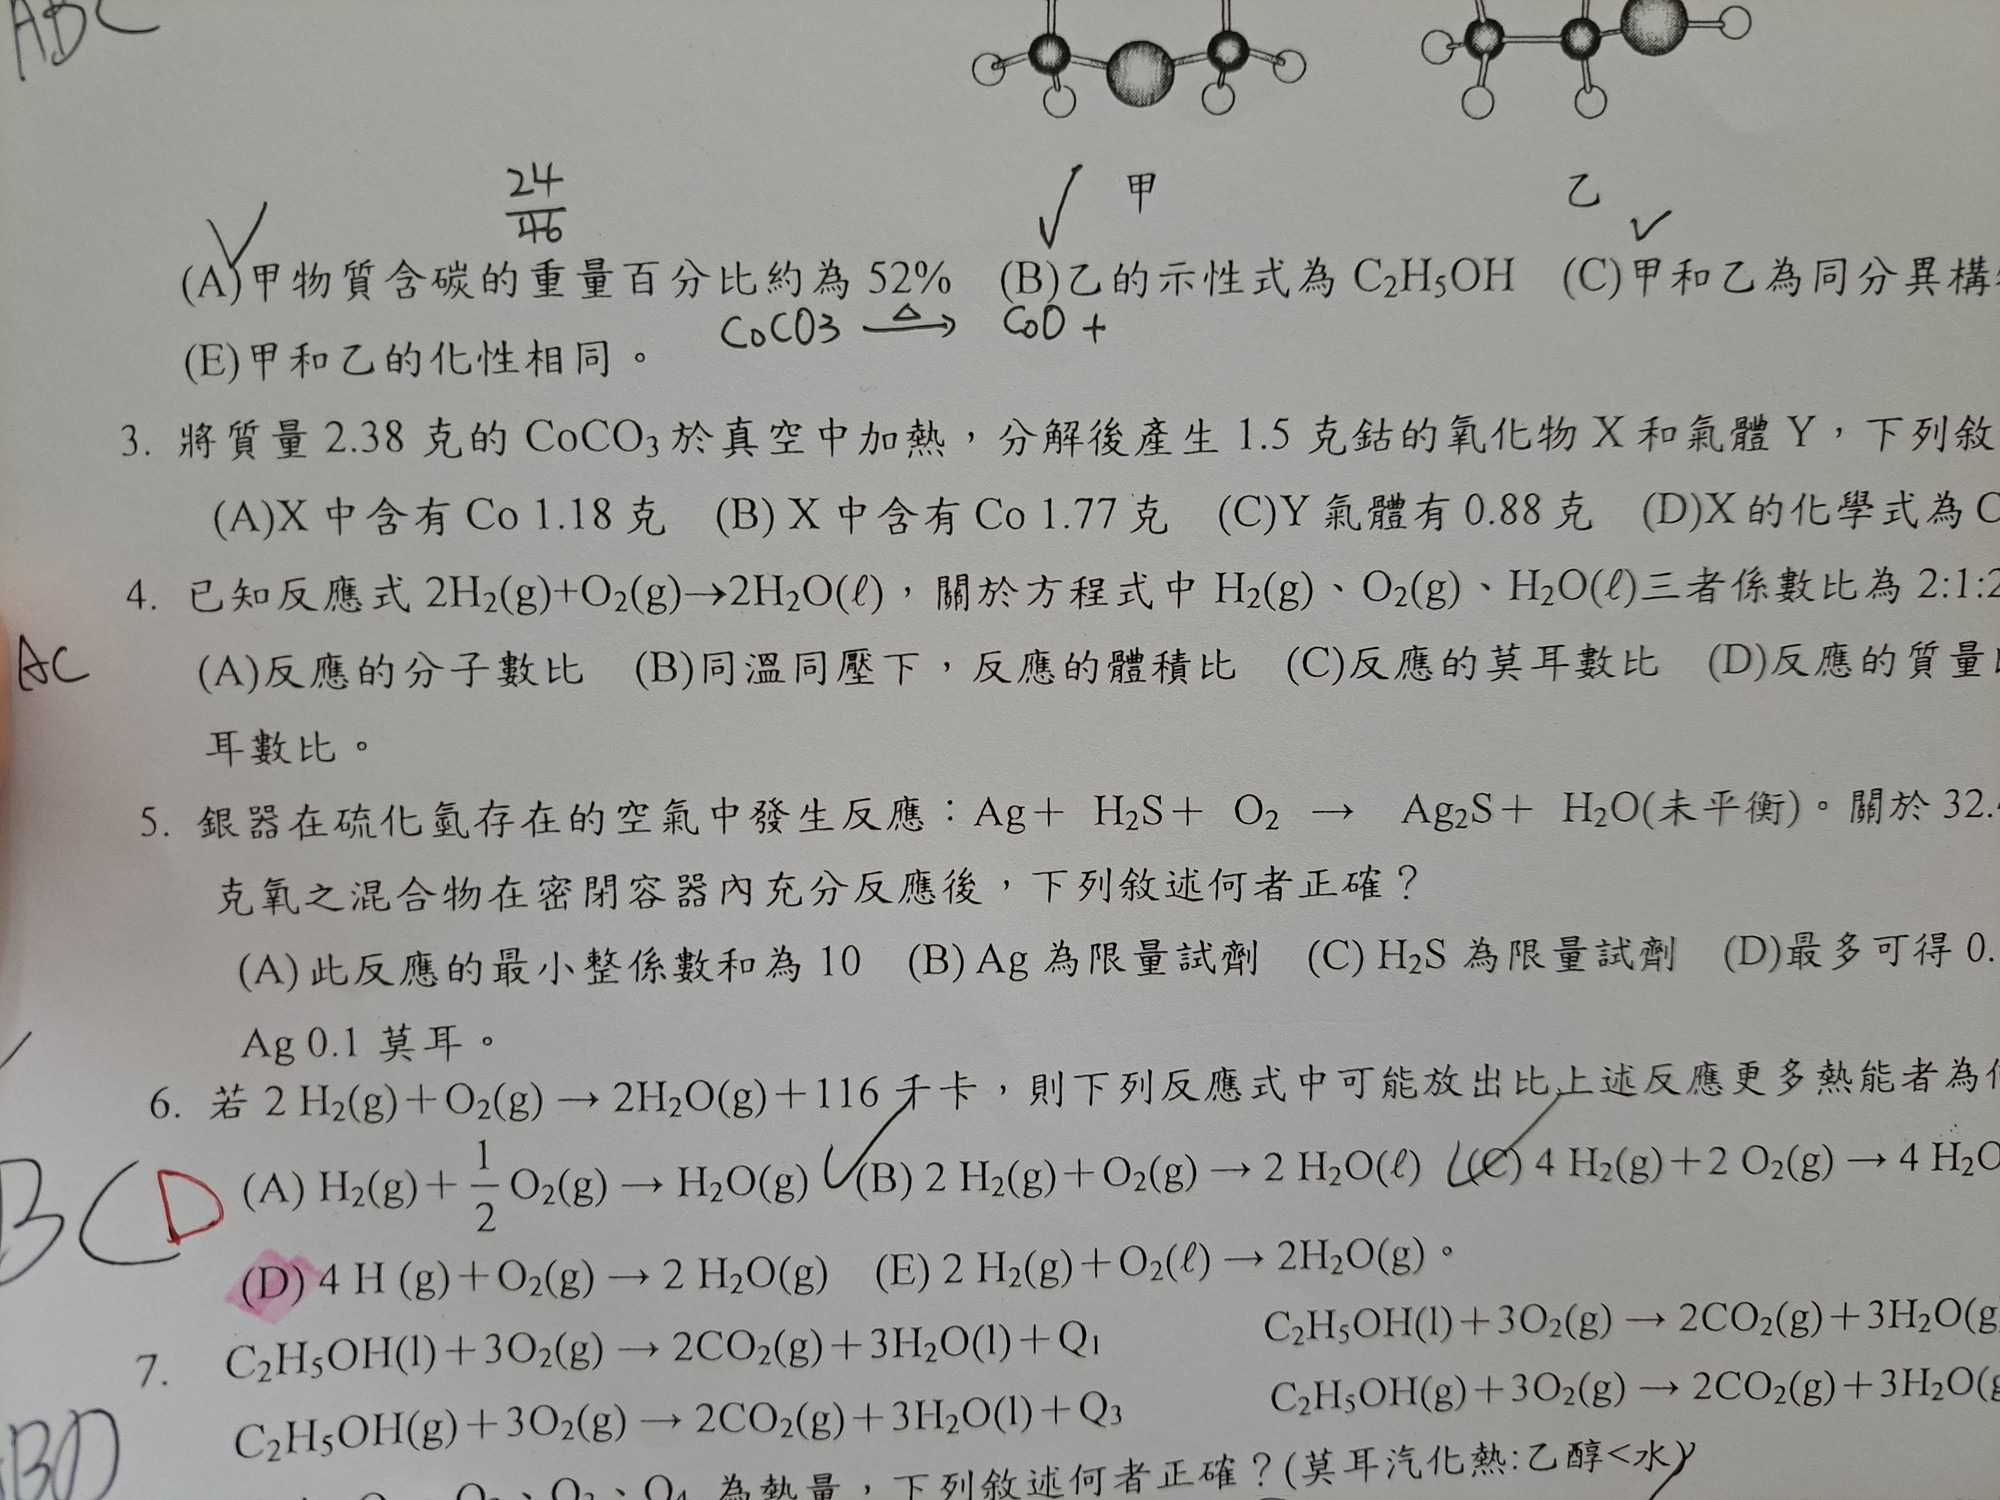 ABC
甲 乙
24
46
(A)甲物質含碳的重量百分比約為 52% (B)乙的示性式為 C₂H₅OH (C)甲和乙為同分異構
CoCO3 △→ CoO +
(E)甲和乙的化性相同。
3. 將質量 2.38 克的 CoCO₃於真空中加熱，分解後產生 1.5 克鈷的氧化物 X 和氣體 Y，下列敘
(A)X 中含有 Co 1.18 克 (B) X 中含有 Co 1.77 克 (C)Y 氣體有 0.88 克 (D)X 的化學式為 C
4. 已知反應式 2H₂(g)+O₂(g)→2H₂O(ℓ)，關於方程式中 H₂(g)、O₂(g)、H₂O(ℓ)三者係數比為 2:1:2
AC
(A)反應的分子數比 (B)同溫同壓下，反應的體積比 (C)反應的莫耳數比 (D)反應的質量
耳數比。
5. 銀器在硫化氫存在的空氣中發生反應：Ag+ H₂S+ O₂ → Ag₂S+ H₂O(未平衡)。關於 32.
克氧之混合物在密閉容器內充分反應後，下列敘述何者正確？
(A) 此反應的最小整係數和為 10 (B) Ag 為限量試劑 (C) H₂S 為限量試劑 (D)最多可得 0.
Ag 0.1 莫耳。
6. 若 2 H₂(g)+O₂(g)→2H₂O(g)+116 千卡，則下列反應式中可能放出比上述反應更多熱能者為
BCD
(A) H₂(g)+1/2 O₂(g)→H₂O(g) (B) 2 H₂(g)+O₂(g)→2 H₂O(ℓ) (C) 4 H₂(g)+2 O₂(g)→4 H₂O
(D) 4 H (g)+O₂(g)→2 H₂O(g) (E) 2 H₂(g)+O₂(ℓ)→2H₂O(g)。
7. C₂H₅OH(l)+3O₂(g)→2CO₂(g)+3H₂O(l)+Q₁ C₂H₅OH(l)+3O₂(g)→2CO₂(g)+3H₂O(g)
C₂H₅OH(g)+3O₂(g)→2CO₂(g)+3H₂O(l)+Q₃ C₂H₅OH(g)+3O₂(g)→2CO₂(g)+3H₂O(g
ABD
為熱量，下列敘述何者正確？(莫耳汽化熱:乙醇<水)